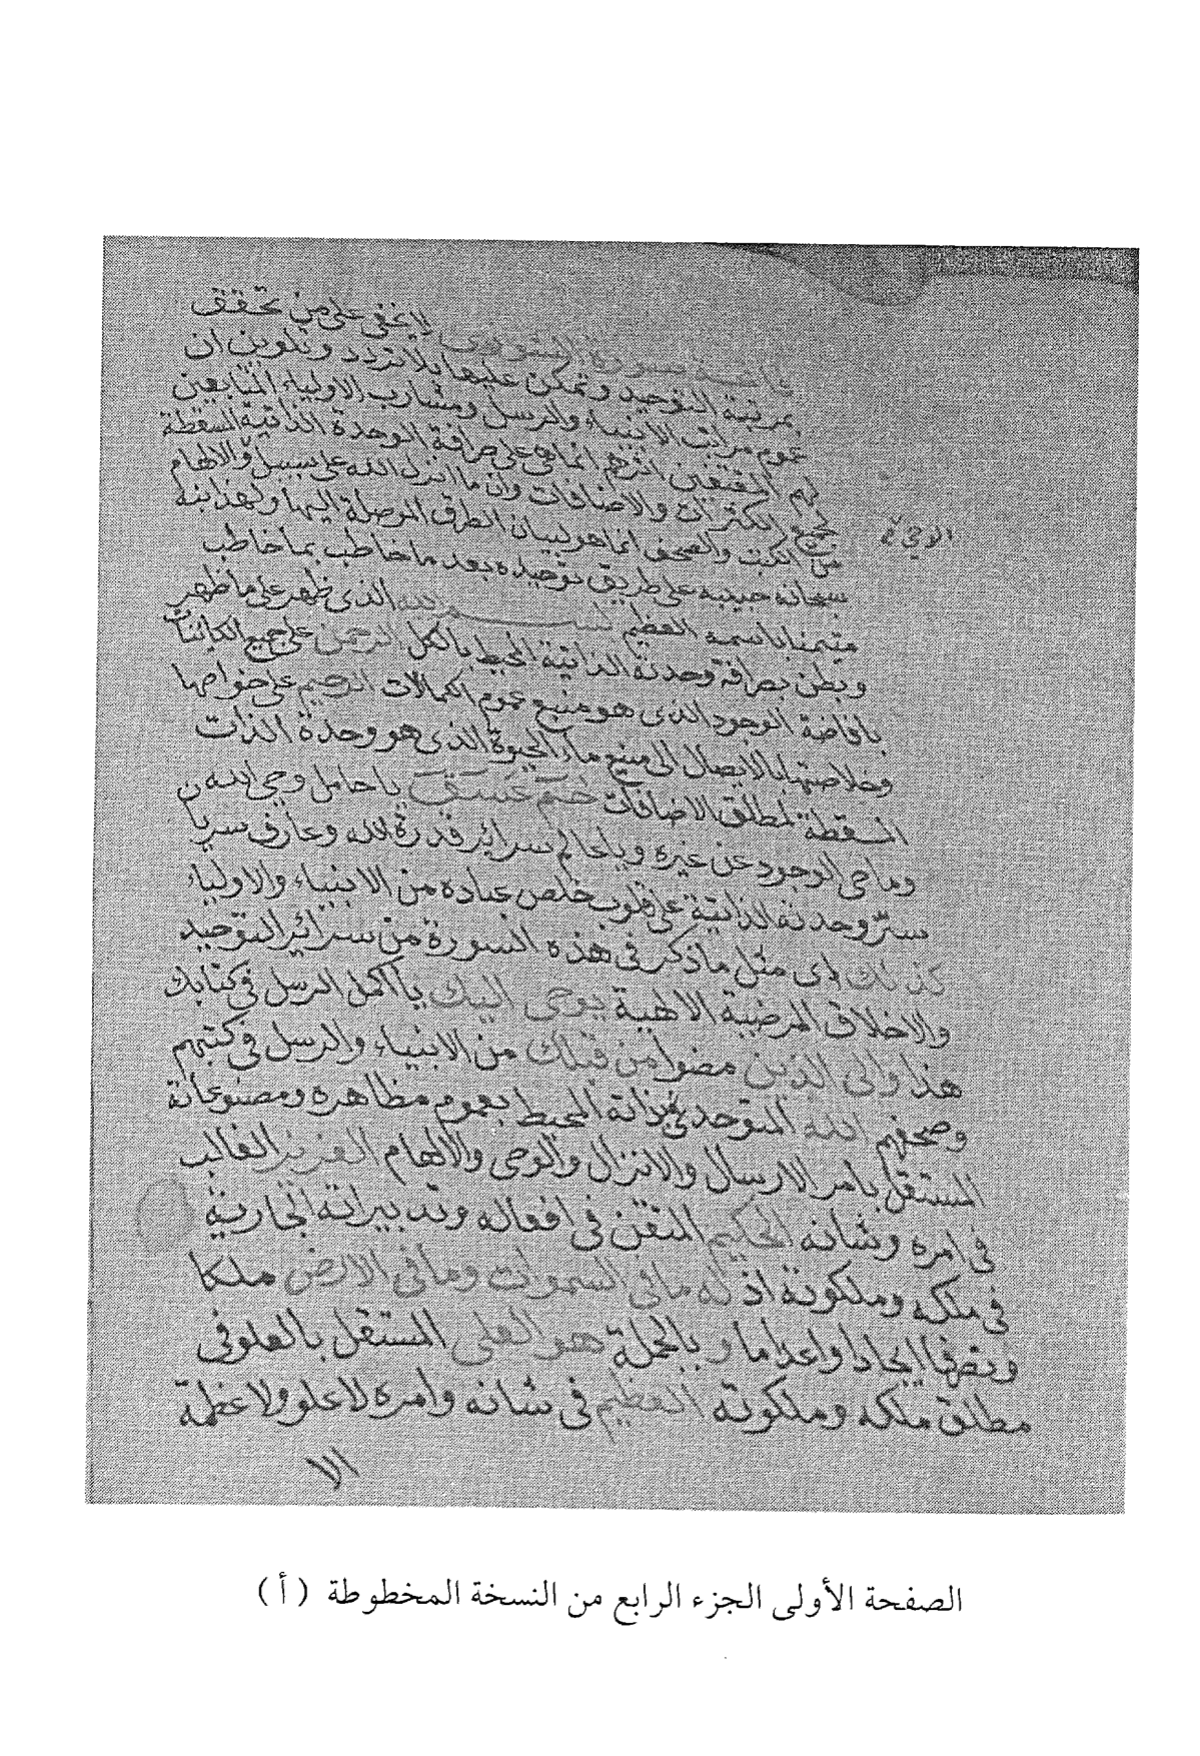 فاتحة سورة الشورى لا يخفى على من تحقق
بمرتبة التوحيد وتمكن عليها بلا تردد وتلوين ان
عموم مراتب الانبياء والرسل ومشارب الاولياء التابعين
لهم المقتفين اثرهم انما هى على صرافة الوحدة الذاتية المسقطة
لجميع الكثرات والاضافات وان ما انزل الله على سبيل والالهام
الوحى
من الكتب والصحف انما هو لبيان الطرق الموصلة اليها ولهذا نبه
سبحانه حبيبه على طريق توحيده بعد ما خاطب بما خاطب
متيمنا باسمه العظيم بسم الله الذى ظهر على ما ظهر
وبطن بصرافة وحدته الذاتية المحيط بالكل الرحمن على جميع الكائنات
بافاضة الوجود الذى هو منبع عموم الكمالات الرحيم على خواصها
وخلاصتها بالايصال الى منبع ماء الحيوة الذى هو وحدة الذات
المسقطة لمطلق الاضافات حم عسق يا حامل وحى الله
وماحى الوجود عن غيره ويا عالم سرائر قدرة الله وعارف سريا
سر وحدته الذاتية على قلوب خلص عباده من الانبياء والاولياء
كذلك اى مثل ما ذكر فى هذه السورة من سرائر التوحيد
والاخلاق المرضية الالهية يوحى اليك يا اكمل الرسل فى كتابك
هذا والى الذين مضوا من قبلك من الانبياء والرسل فى كتبهم
وصحفهم الله المتوحد فى ذاته المحيط بعموم مظاهره ومصنوعاته
المستقل بامر الارسال والانزال والوحى والالهام العزيز الغالب
فى امره وشانه الحكيم المتقن فى افعاله وتدبيراته الجارية
فى ملكه وملكوته اذ له ما فى السموات وما فى الارض ملكا
وتصرفا ايجادا واعداما وبالجملة هو العلى المستقل بالعلو فى
مطلق ملكه وملكوته العظيم فى شانه وامره لا علو ولا عظمة
الا
الصفحة الأولى الجزء الرابع من النسخة المخطوطة ( أ )